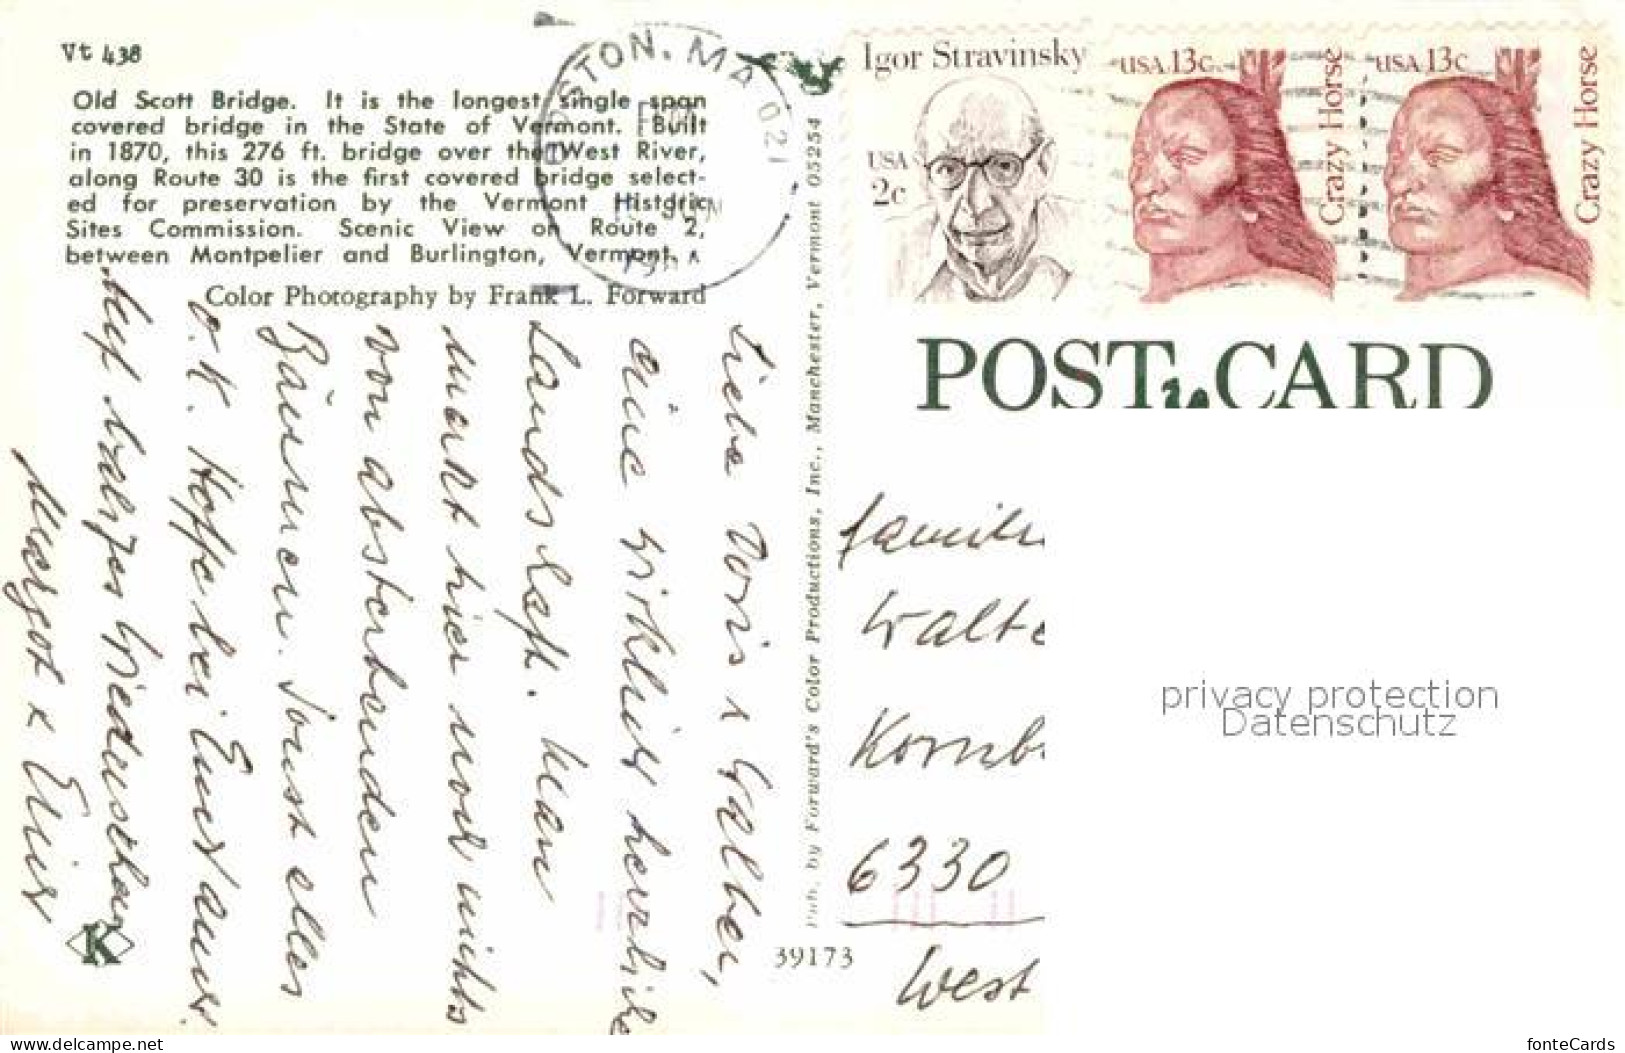 Vt 438
Old Scott Bridge. It is the longest single span
covered bridge in the State of Vermont. Built
in 1870, this 276 ft. bridge over the West River,
along Route 30 is the first covered bridge select-
ed for preservation by the Vermont Historic
Sites Commission. Scenic View on Route 2,
between Montpelier and Burlington, Vermont.
Color Photography by Frank L. Forward
BOSTON, MA 021
Igor Stravinsky
USA
2c
USA 13c
Crazy Horse
USA 13c
Crazy Horse
POST CARD
Pub. by Forward's Color Productions, Inc., Manchester, Vermont 05254
39173
K
Liebe Doris &
eine wirklich herrliche
Landschaft. Man
merkt hier noch nichts
von absterbenden
Bäumen. Sonst alles
o.K. Hoffe bei Euch auch.
Auf baldiges Wiedersehen
Margot &
Famili
Walte
Kornb
6330
West
privacy protection
Datenschutz
www.delcampe.net
fonteCards